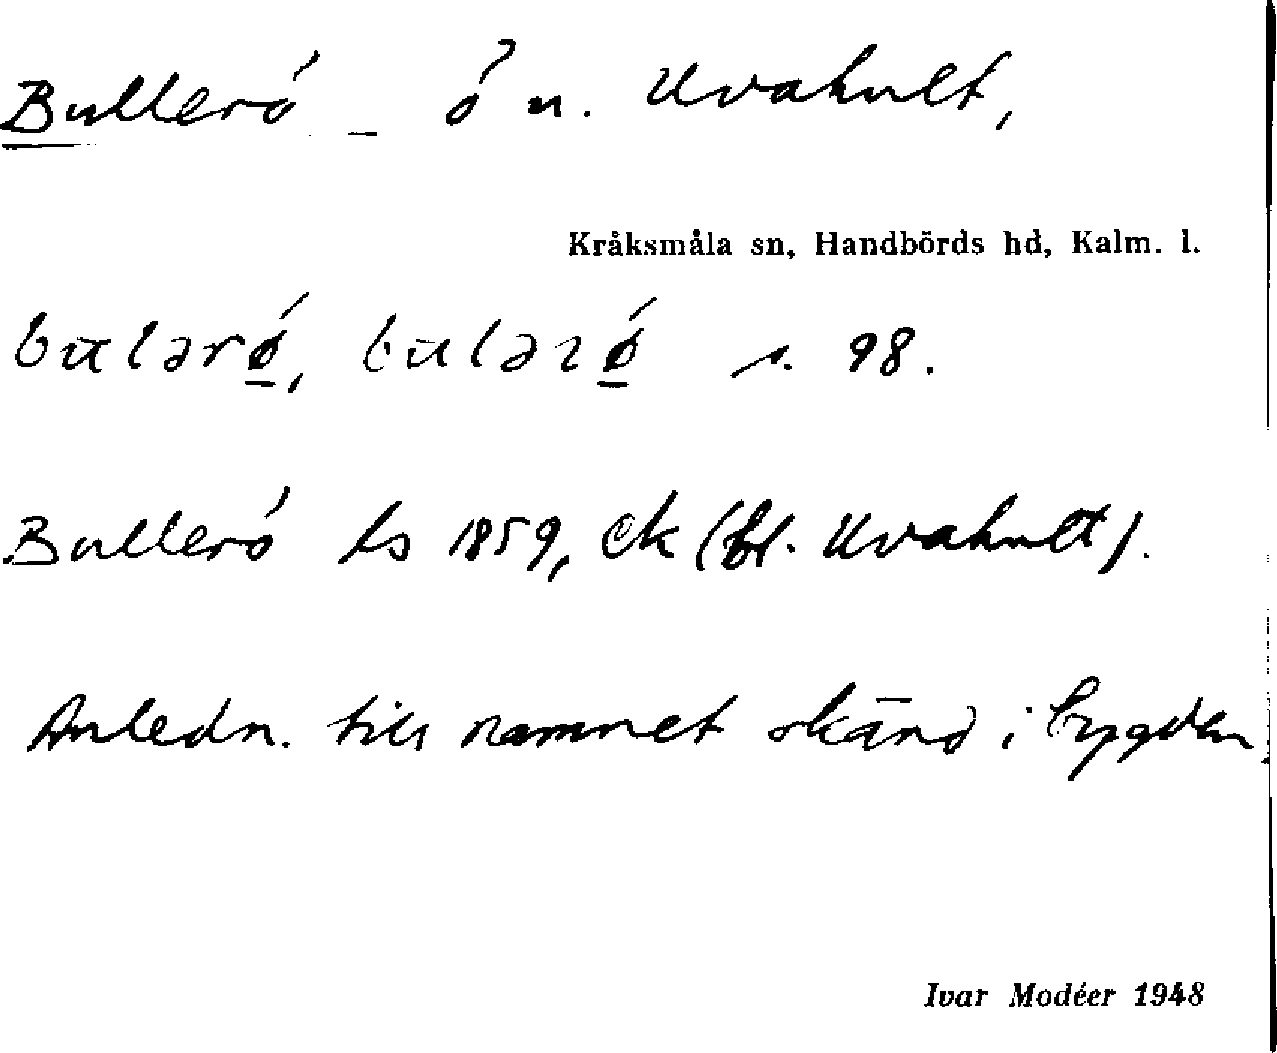 Bullerö – ö u. Uvahult,
Kråksmåla sn, Handbörds hd, Kalm. l.
bulərǿ, bulərǿ s. 98.
Bullerö Ls 1859, Ek (bl. Uvahult).
Anledn. till namnet okänd i bygden.
Ivar Modéer 1948